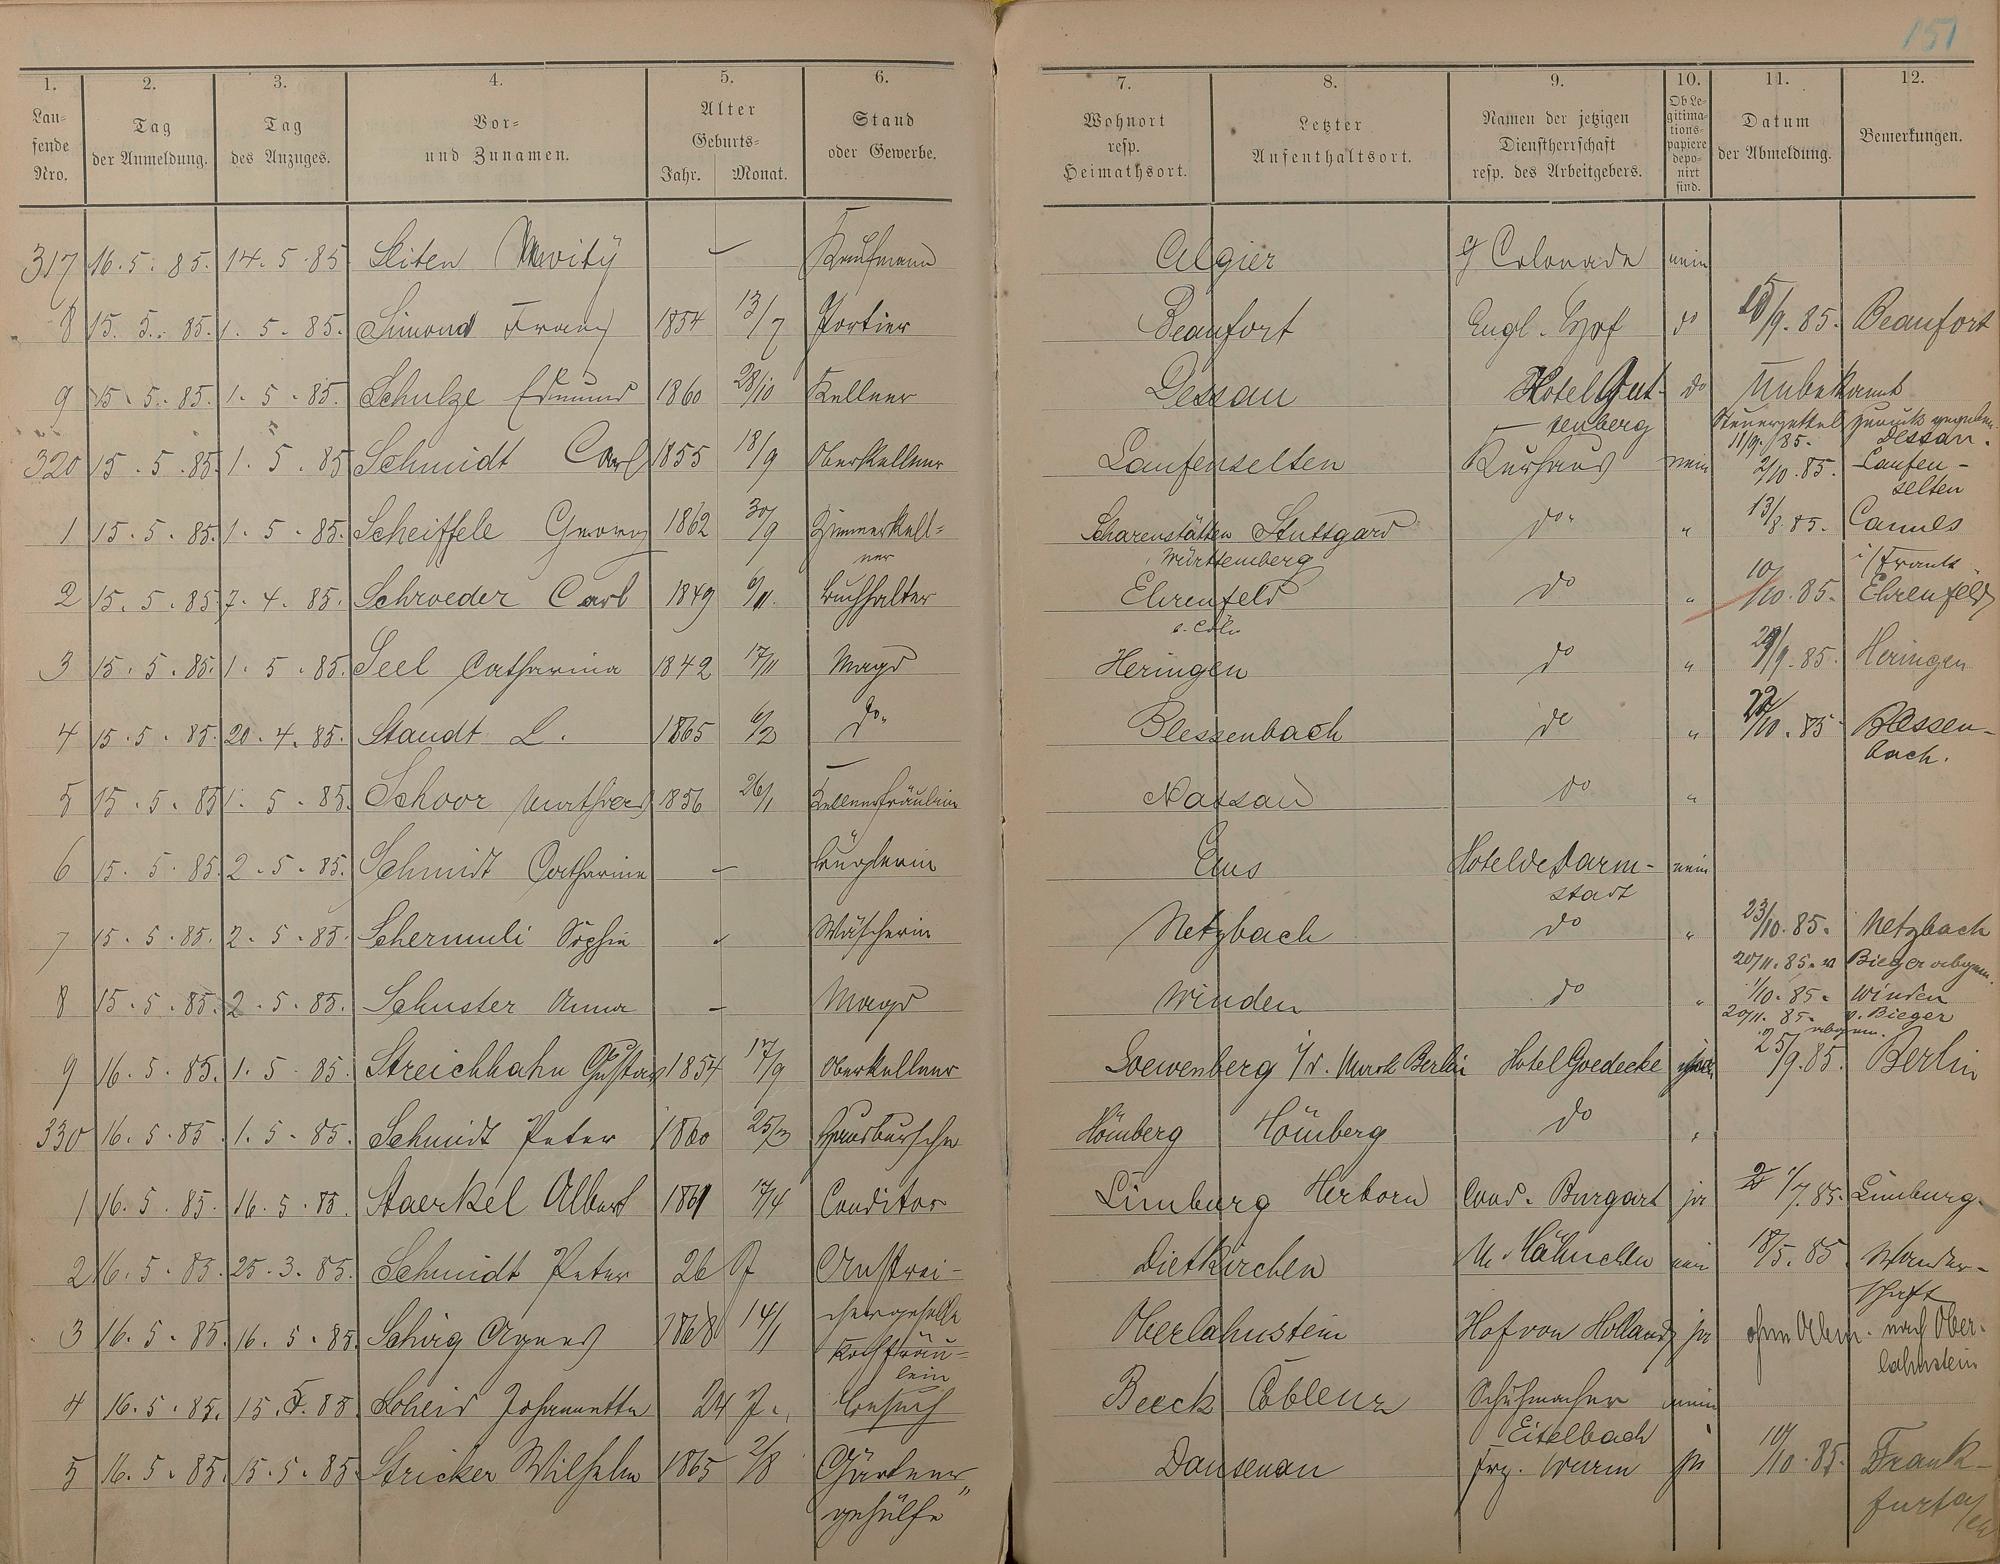 151
1. 2. 3. 4. 5. 6. 7. 8. 9. 10. 11. 12.
Lau-
fende
Nro.
Tag
der Anmeldung.
Tag
des Anzuges.
Vor-
und Zunamen.
Alter
Geburts-
Jahr. Monat.
Stand
oder Gewerbe.
Wohnort
resp.
Heimathsort.
Letzter
Aufenthaltsort.
Namen der jetzigen
Dienstherrschaft
resp. des Arbeitgebers.
Ob Le-
gitima-
tions-
papiere
depo-
nirt
sind.
Datum
der Abmeldung.
Bemerkungen.
317 16. 5. 85. 14. 5. 85 — Kaufmann Algier Colonade nein
8 15. 5. 85. 1. 5. 85. Simond Franz 1854 13/7 Portier Beaufort Engl. Hof do 15/9. 85. Beaufort
9 15. 5. 85. 1. 5. 85. Schulze Edmund 1860 28/10 Kellner Dessau Hotel Gut- do Unbekannt
tenberg Steuerzettel zurück gegeben
11/9. 85. Dessau.
320 15. 5. 85. 1. 5. 85 Schmidt Carl 1855 18/9 Oberkellner Laufenselten Kurhaus nein 2/10. 85. Laufen-
selten
1 15. 5. 85. 1. 5. 85. Scheiffele Georg 1862 30/9 Zimmerkell- Scharenstätten Stuttgard do. " 13/8. 85. Cannes
ner Württemberg i/Frank
2 15. 5. 85 7. 4. 85. Schroeder Carl 1849 6/11. Buchhalter Ehrenfeld do " 10/10. 85. Ehrenfeld
b. Cöln
3 15. 5. 85. 1. 5. 85. Seel Catharina 1842 17/11 Magd Heringen do " 29/9. 85. Heringen
4 15. 5. 85. 20. 4. 85. Staudt L. 1865 6/2 do. Blessenbach do " 22/10. 85 Blessen-
bach.
5 15. 5. 85 1. 5. 85. Schoor 1856 26/1 Kellnerfräulein Nassau do "
6 15. 5. 85. 2. 5. 85. Schmidt Catharina — Büglerin Ems Hotel de Darm- nein
stadt
7 15. 5. 85. 2. 5. 85. Schermuli Sophie " Wäscherin Netzbach do " 23/10. 85. Netzbach
20/11. 85. Bieger abgem.
8 15. 5. 85. 2. 5. 85. Schuster Anna — Magd Winden do " 1/10. 85. Winden
20/11. 85. v. Bieger
abgem.
9 16. 5. 85. 1. 5. 85. Streichhahn Gustav 1854 17/9 Oberkellner Loewenberg i/d. Mark Berlin Hotel Goedecke 25/9. 85. Berlin
330 16. 5. 85. 1. 5. 85. Schmidt Peter 1860 25/3 Hausbursche Hömberg Hömberg do "
1 16. 5. 85. 16. 5. 85. Staerkel Albert 1861 17/4 Conditor Limburg Herborn Cond. Burgart ja 1/7. 85. Limburg.
2 16. 5. 85. 25. 3. 85. Schmidt Peter 26 J Anstrei- Dietkirchen M. Hähnchen nein 18/5. 85. Wander-
chergeselle schaft
3 16. 5. 85. 16. 5. 85. Schög Agnes 1868 14/1 Kochfräu- Oberlahnstein Hof von Holland ja ohne Abm. nach Ober-
lein lahnstein
4 16. 5. 85. 15. 5. 85 Scheid Johannette 24 J. Besuch Beeck Coblenz Schuhmacher nein
Eitelbach
5 16. 5. 85. 15. 5. 85 Stricker Wilhelm 1865 2/8 Gärtner Dausenau Frz. Wurm ja 10/10. 85. Frank-
gehülfe furt a/M